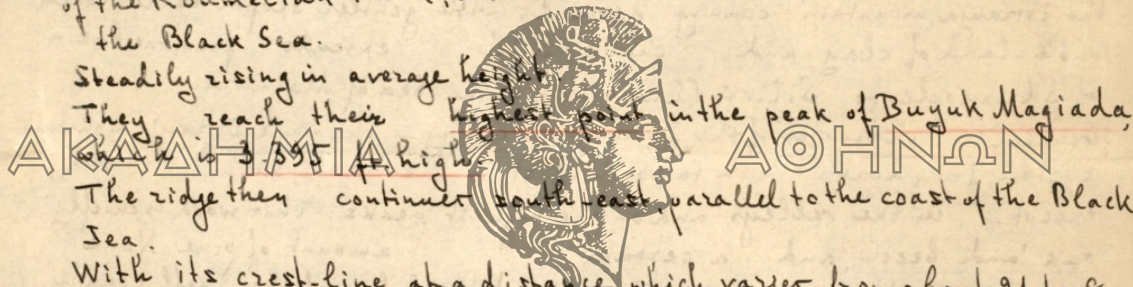 of the
the Black Sea.
Steadily rising in average height
They reach their highest point in the peak of Buyuk Magiada,
which is 3.395 ft. high.
ΑΚΑΔΗΜΙΑ ΑΘΗΝΩΝ
The ridge then continues south-east, parallel to the coast of the Black
Sea.
With its crest-line at a distance which varies